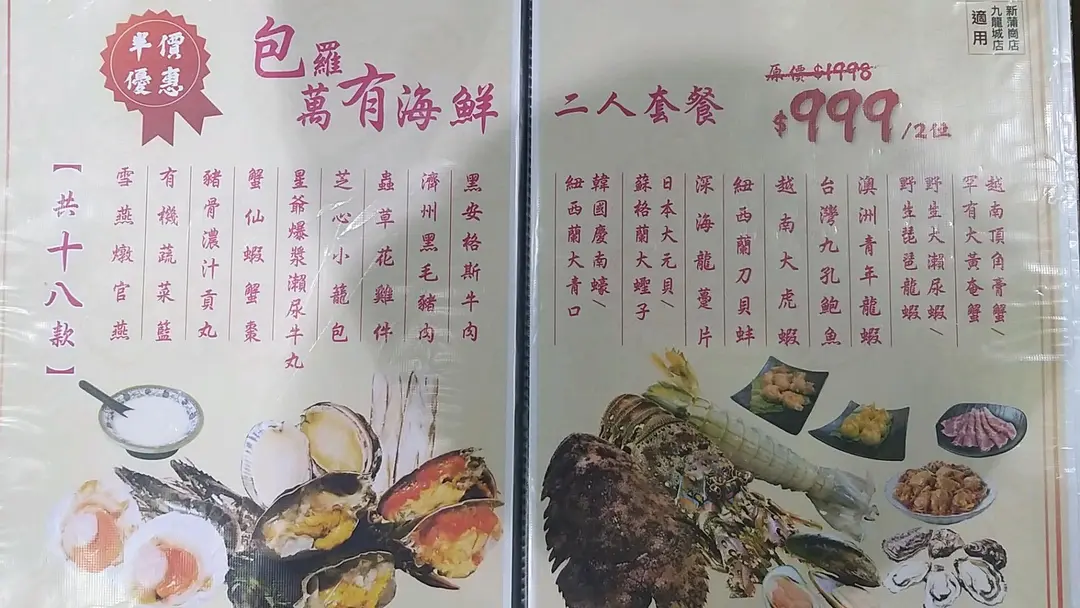 半價
優惠
包羅
萬有海鮮
二人套餐
原價$1998
$999/2位
新蒲崗店
九龍城店
適用
越南頂角膏蟹/
罕有大黃奄蟹
野生大瀨尿蝦/
野生琵琶龍蝦
澳洲青年龍蝦
台灣九孔鮑魚
越南大虎蝦
紐西蘭刀貝蚌
深海龍躉片
日本大元貝/
蘇格蘭大蟶子
韓國慶南蠔/
紐西蘭大青口
黑安格斯牛肉
濟州黑毛豬肉
蟲草花雞件
芝心小籠包
星爺爆漿瀨尿牛丸
蟹仙蝦蟹棗
豬骨濃汁貢丸
有機蔬菜籃
雪燕燉官燕
【共十八款】